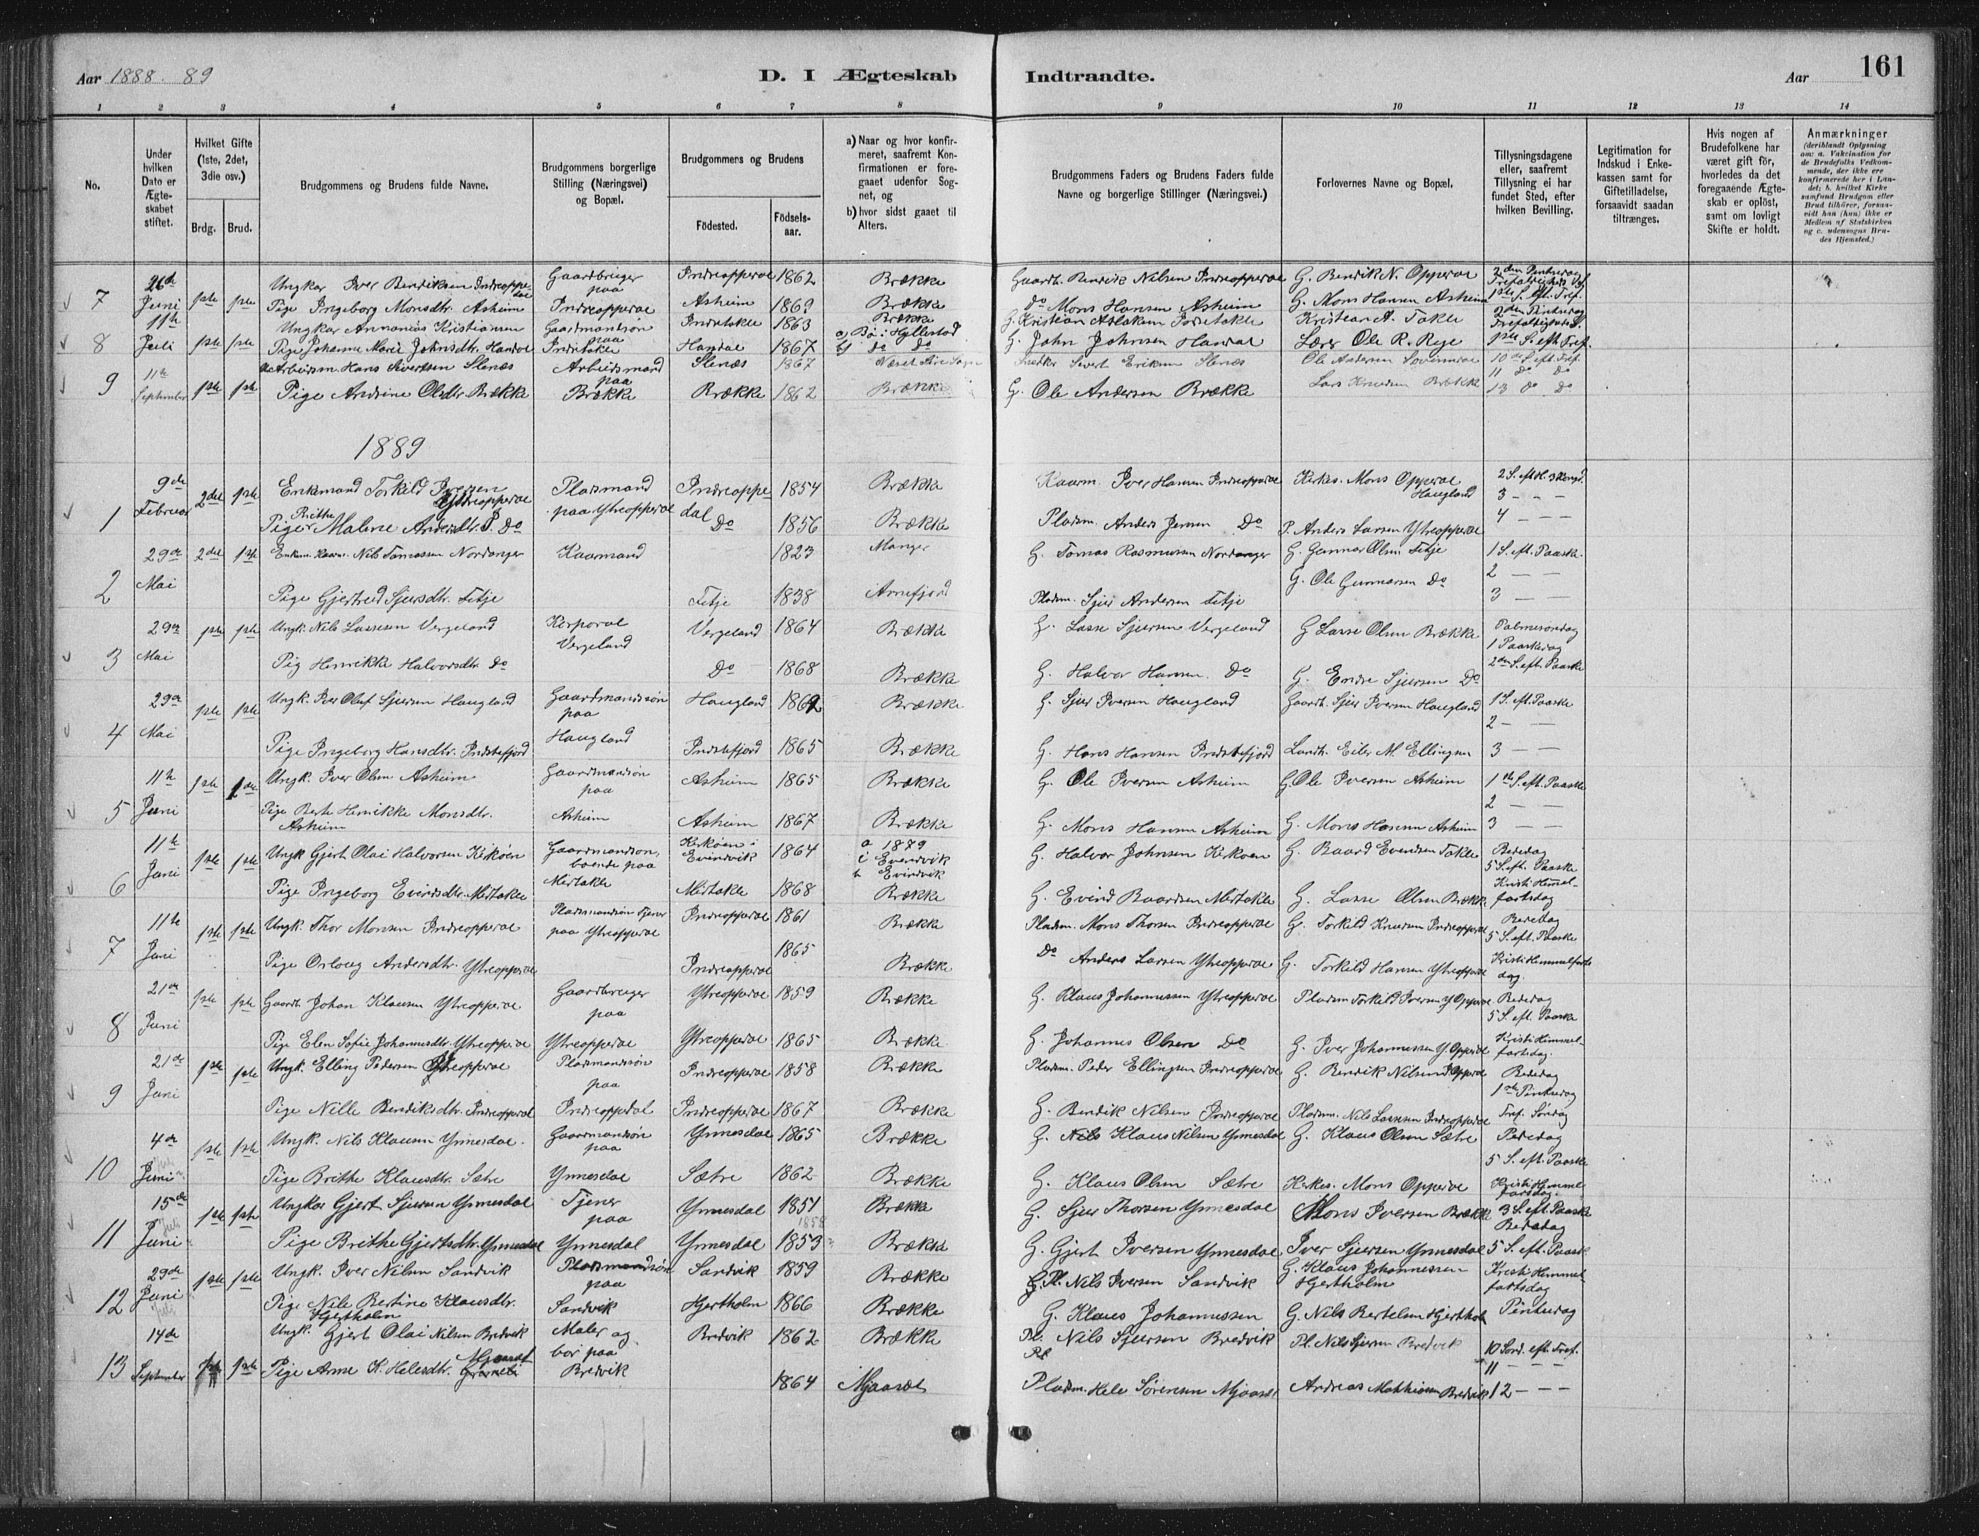 Aar 1888. 89
D. I Ægteskab Indtraadte.
Aar 161
1 2 3 4 5 6 7 8 9 10 11 12 13 14
No.
Under hvilken Dato er Ægteskabet stiftet.
Hvilket Gifte (1ste, 2det, 3die osv.)
Brdg. Brud.
Brudgommens og Brudens fulde Navne.
Brudgommens borgerlige Stilling (Næringsvei) og Bopæl.
Brudgommens og Brudens
Fødested. Fødselsaar.
a) Naar og hvor konfirmeret, saafremt Konfirmationen er foregaaet udenfor Sognet, og
b) hvor sidst gaaet til Alters.
Brudgommens Faders og Brudens Faders fulde Navne og borgerlige Stillinger (Næringsvei.)
Forlovernes Navne og Bopæl.
Tillysningsdagene eller, saafremt Tillysning ei har fundet Sted, efter hvilken Bevilling.
Legitimation for Indskud i Enkekassen samt for Giftetilladelse, forsaavidt saadan tiltrænges.
Hvis nogen af Brudefolkene har været gift før, hvorledes da det foregaaende Ægteskab er opløst, samt om lovligt Skifte er holdt.
Anmærkninger (deriblandt Oplysning om: a. Vakcination for de Brudefolks Vedkommende, der ikke ere konfirmerede her i Landet; b. hvilket Kirkesamfund Brudgom eller Brud tilhører, forsaavidt han (hun) ikke er Medlem af Statskirken og c. udensogns Brudes Hjemsted.)
7 Juni 1ste 1ste Ungkar Iver Bendiksen Indreoppedal Gaardbruger paa Indreoppedal Indreoppedal 1862 Brække Gaardb. Bendik Nilsen Indreoppedal G. Bendik N. Oppedal 2den Pintsedag
Pige Ingeborg Monsdtr. Asheim Asheim 1869 Brække Do Mons Hansen Asheim G. Mons Hansen Asheim 1ste S. eft. Tref.
8 11te Juli 1ste 1ste Ungkar Annanias Kristiansen Gaardmandsøn paa Indretakle Indretakle 1863 Brække G. Kristian Aslaksen Indretakle Kristian A. Takle 2den Pintsedag
Pige Johanne Marie Johnsdtr. Handal Handal 1867 a) Bø i Hyllestad b) do do G. John Johnsen Handal Lærer Ole R. Rye 1ste S. eft. Tref.
9 11te September 1ste 1ste Arbeidsm Hans Sivertsen Stenæs Arbeidsmand paa Brække Stenæs 1867 Sivert Eriksen Stenæs Ole Andersen 10de S. eft. Tref.
Pige Andrine Olsdtr. Brække Brække 1862 Brække G. Ole Andersen Brække Lars Knudsen Brække 11 Do Do
13 Do Do
1889
1 9de Februar 2det 1ste Enkemand Torkild Iversen Ytreoppedal Pladsmand paa Ytreoppedal Indreoppedal 1854 Brække Kaarm. Iver Hansen Indreoppedal Kirkes. Mons Oppedal Haugland 2 S. eft. H. 3 Kongd.
3 – – –
Pige Brithe Malene Andersdtr. Do Do 1856 Brække Pladsm. Anders Jensen Do P. Anders Larsen Ytreoppedal 4 – – –
2 29de Mai 2det 1ste Enkem. Kaarm. Nils Tomassen Nordanger Kaarmand 1823 Manger G. Tomas Rasmussen Nordanger G. Gunnar Olsen Fetje 1 S. eft. Paaske
G. Ole Gunnarsen Do 2 – –
Pige Gjertrud Sjursdtr. Fetje Fetje 1838 Arnefjord Pladsm. Sjur Andersen Fetje 3 – –
3 29de Mai 1ste 1ste Ungk. Nils Lassesen Vergeland Korporal Vergeland Vergeland 1864 Brække G. Lasse Sjursen Vergeland G Lasse Olsen Brække Palmesøndag
1 Paaskedag
Pig Henrikke Halvorsdtr. Do Do 1868 Brække G. Halvor Hansen Do G. Endre Sjursen Do 2den S. eft. Paaske
4 29de Mai 1ste 1ste Ungk. Iver Oluf Sjursen Haugland Gaardmandssøn paa Haugland Haugland 1862 Brække G. Sjur Iversen Haugland Gaardb. Sjur Iversen Haugland 1 S. eft. Paaske
2 – –
Pige Ingeborg Hansdtr. Indstefjord Indstefjord 1865 Brække G. Hans Hansen Indstefjord Landh. Eiler M. Ellingsen 3 – –
5 11te Juni 1ste 1ste Ungk. Iver Olsen Asheim Gaardmandsøn paa Asheim Asheim 1865 Brække G. Ole Iversen Asheim G. Ole Iversen Asheim 1ste S. eft. Paaske
2 – –
Pige Berte Henrikke Monsdtr. Asheim Asheim 1867 Brække G. Mons Hansen Asheim G. Mons Hansen Asheim 3 – –
6 11te Juni 1ste 1ste Ungk Gjert Olai Halvorsen Kirkøen Gaardmandsøn, boende paa Mistakle Kirkøen i Evindvik 1864 a 1879 i Evindvik b Evindvik G. Halvor Johnsen Kirkøen G. Baard Evindsen Takle Bededag
5 S. eft. Paaske
Pige Ingeborg Evindsdtr. Mistakle Mistakle 1868 Brække G. Evind Baardsen Mistakle G. Lasse Olsen Brække Kristi Himmelfartsdag
7 11te Juni 1ste 1ste Ungk. Thor Monsen Indreoppedal Pladsmandsøn tjener paa Ytreoppedal Indreoppedal 1861 Brække Pladsm. Mons Thorsen Indreoppedal G. Torkild Knudsen Indreoppedal Bededag
5 S. eft. Paaske
Pige Orloug Andersdtr. Ytreoppedal Indreoppedal 1865 Brække Do Anders Larsen Ytreoppedal G. Torkild Hansen Ytreoppedal Kristi Himmelfartsdag
8 21de Juni 1ste 1ste Gaardb. Johan Klausen Ytreoppedal Gaardbruger paa Ytreoppedal Ytreoppedal 1859 Brække G. Klaus Johannessen Ytreoppedal Pladsm Torkild Iversen Y. Oppedal Bededag
5 S. eft. Paaske
Pige Elen Sofie Johannesdtr. Ytreoppedal Ytreoppedal 1865 Brække G. Johannes Olsen Do G. Iver Johannessen Y. Oppedal Kristi Himmelfartsdag.
9 21de Juni 1ste 1ste Ungk. Elling Pedersen Ytreoppedal Pladsmandsøn paa Indreoppedal Indreoppedal 1858 Brække Pladsm. Peder Ellingsen Indreoppedal G. Bendik Nilsen I Oppedal Bededag
1ste Pintsedag
Pige Nille Bendiksdtr. Indreoppedal Indreoppedal 1867 Brække G. Bendik Nilsen Indreoppedal Pladsm. Nils Lassesen Indreoppedal Tref. Søndag
10 4de Juni 1ste 1ste Ungk. Nils Klausen Ynnesdal Gaardmandsøn paa Ynnesdal Ynnesdal 1865 Brække G. Klaus Nilsen Ynnesdal G. Klaus Olsen Sætre Bededag
5 S. eft. Paaske
Pige Brithe Klausdtr. Sætre Sætre 1862 Brække G. Klaus Olsen Sætre Kirkes. Mons Oppedal Kristi Himmelfartsdag.
11 15de Juni 1ste 1ste Ungkar Gjert Sjursen Ynnesdal Tjener paa Ynnesdal Ynnesdal 1857 Brække G. Sjur Thorsen Ynnesdal Mons Iversen Brække 3 S. eft. Paaske
Bededag
Pige Brithe Gjertsdtr. Ynnesdal Ynnesdal 1853 1858 Brække G. Gjert Iversen Ynnesdal Iver Sjursen Ynnesdal 5 S. eft. Paask
12 29de Juni 1ste 1ste Ungk. Iver Nilsen Sandvik Pladsmandsøn paa Sandvik Sandvik 1859 Brække Pl. Nils Iversen Sandvik G. Klaus Johannessen Hjertholm Kristi Himmelfartsdag
Pige Nile Bertine Klausdtr. Hjertholm Hjertholm 1866 Brække G. Klaus Johannessen G. Nils Bertelsen Hjerthol Pintsedag
13 14de September 1ste 1ste Ungk. Gjert Olai Nilsen Bredvik Maler og bor paa Bredvik Bredvik 1862 Brække Pl. Nils Sjursen Bredvik Pl. Nils Sjursen Bredvik 10 Sønd. eft. Tref.
11 – – –
Pige Anne K. Helesdtr. Mjaaset 1864 Mjaaset Pladsm. Hele Sørensen Mjaaset Andreas Mathiasen Bredvik 12 – – –